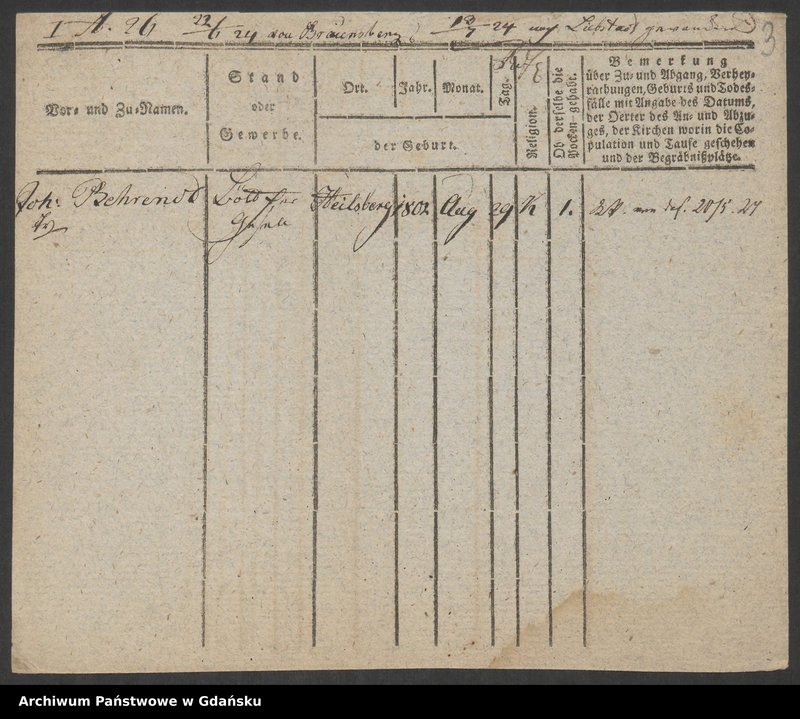 I A. 26 22/6 24 von Braunsberg 13/7 24 nach Liebstadt gewandert
3
Vor- und Zu-Namen.
Stand
oder
Gewerbe.
Ort.
Jahr.
Monat.
Tag.
der Geburt.
Religion.
Ob derselbe die
Pocken gehabt.
Bemerkung
über Zu- und Abgang, Verhey-
rathungen, Geburts und Todes-
fälle mit Angabe des Datums,
der Oerter des An- und Abzu-
ges, der Kirchen worin die Co-
pulation und Taufe geschehen
und der Begräbnißplätze.
Joh: Behrendt
Gesell
Heilsberg
1802
Aug
29
K
1.
20/5. 27
Archiwum Państwowe w Gdańsku